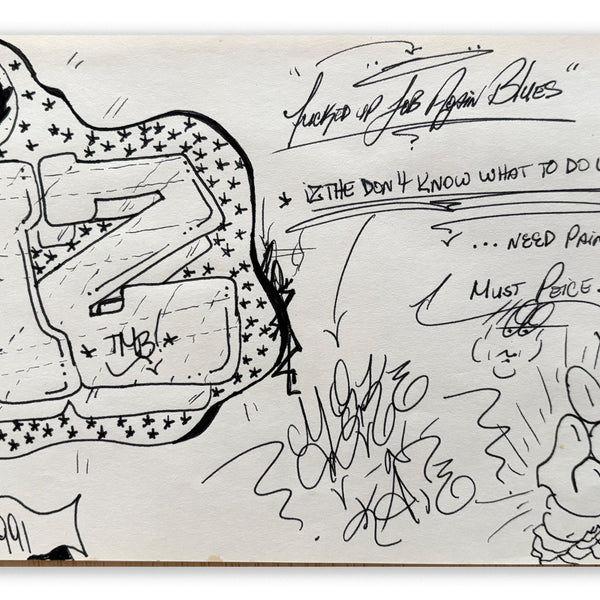 "FUCKED UP JOB AGAIN BLUES"
* iz THE DON'T KNOW WHAT TO DO
... NEED PAIN
MUST PEICE.
Z
JMB!
991